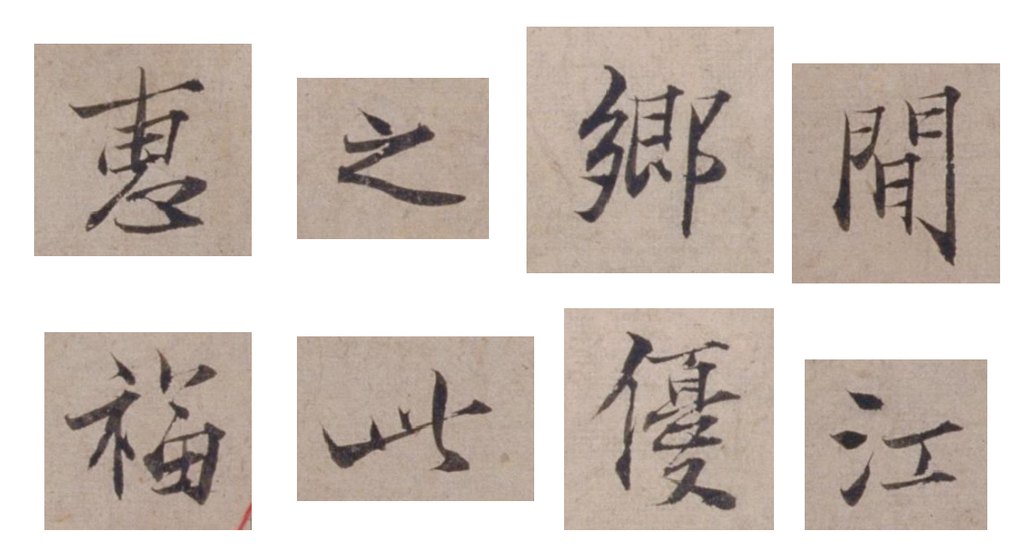 惠之鄉間
福此優江